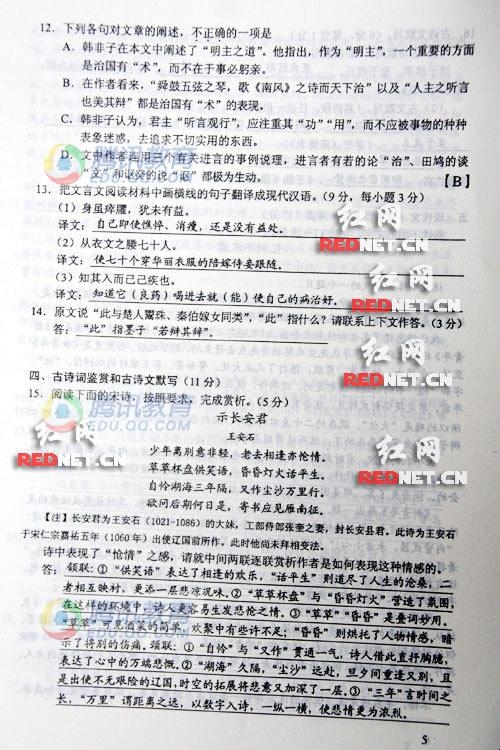 12. 下列各句对文章的阐述，不正确的一项是
A．韩非子在本文中阐述了“明主之道”。他指出，作为“明主”，一个重要的方面
是治国有“术”，而不在于事必躬亲。
B．在作者看来，“舜鼓五弦之琴，歌《南风》之诗而天下治”以及“人主之听言
也美其辩”都是治国有“术”的表现。
C．韩非子认为，君主“听言观行”，应注重其“功”“用”，而不应被事物的种种
表象迷惑，去追求不切实用的东西。
D．文中作者连用三个有关进言的事例说理，进言者有若的论“治”、田鸠的谈
“文”和讴癸的说“讴”都极为生动。
【B】
13. 把文言文阅读材料中画横线的句子翻译成现代汉语。（9分，每小题3分）
（1）身虽瘅臞，犹未有益。
译文：自己即使憔悴、消瘦，还是没有益处。
（2）从衣文之媵七十人。
译文：使七十个穿华丽衣服的陪嫁侍妾跟随。
（3）知其入而已己疾也。
译文：知道它（良药）喝进去就（能）使自己的病治好。
14. 原文说“此与楚人鬻珠、秦伯嫁女同类”，“此”指什么？请联系上下文作答。（3分）
答：“此”指墨子“若辩其辞”。
四、古诗词鉴赏和古诗文默写（11分）
15. 阅读下面的宋诗，按照要求，完成赏析。（5分）
示长安君
王安石
少年离别意非轻，老去相逢亦怆情。
草草杯盘供笑语，昏昏灯火话平生。
自怜湖海三年隔，又作尘沙万里行。
欲问后期何日是，寄书应见雁南征。
【注】长安君为王安石（1021-1086）的大妹，工部侍郎张奎之妻，封长安县君。此诗为王安石
于宋仁宗嘉祐五年（1060年）出使辽国前所作。此时他尚未拜相变法。
诗中表现了“怆情”之感，请就中间两联逐联赏析作者是如何表现这种情感的。
答：颔联：①“供笑语”表达了相逢的欢乐，“话平生”则道尽了人生的沧桑，二
者相互映衬，更添一层悲凉况味。②“草草杯盘”与“昏昏灯火”营造了氛围，
在这样的环境中，诗人更容易生发悲怆之情。③“草草”“昏昏”是叠词妙用。
“草草”可见酒菜的简单，欢聚中有些许不足；“昏昏”则烘托了人物情感，暗
示了将别的伤痛。颈联：①“自怜”与“又作”贯通一气，诗人借此直抒胸臆，
表达了心中的万端悲慨。②“湖海”久隔，“尘沙”远赴，旦夕间重逢又别，且
是出使不无艰险的辽国，时空的拓展将悲意又加深了一层。③“三年”言时间之
长，“万里”谓距离之远，以数字入诗，一纵一横，使悲情更为浓烈。
5
腾讯教育
EDU.QQ.COM
红网
REDNET.CN
红网
REDNET.CN
红网
REDNET.CN
腾讯教育
EDU.QQ.COM
红网
REDNET.CN
红网
REDNET.CN
腾讯教育
EDU.QQ.COM